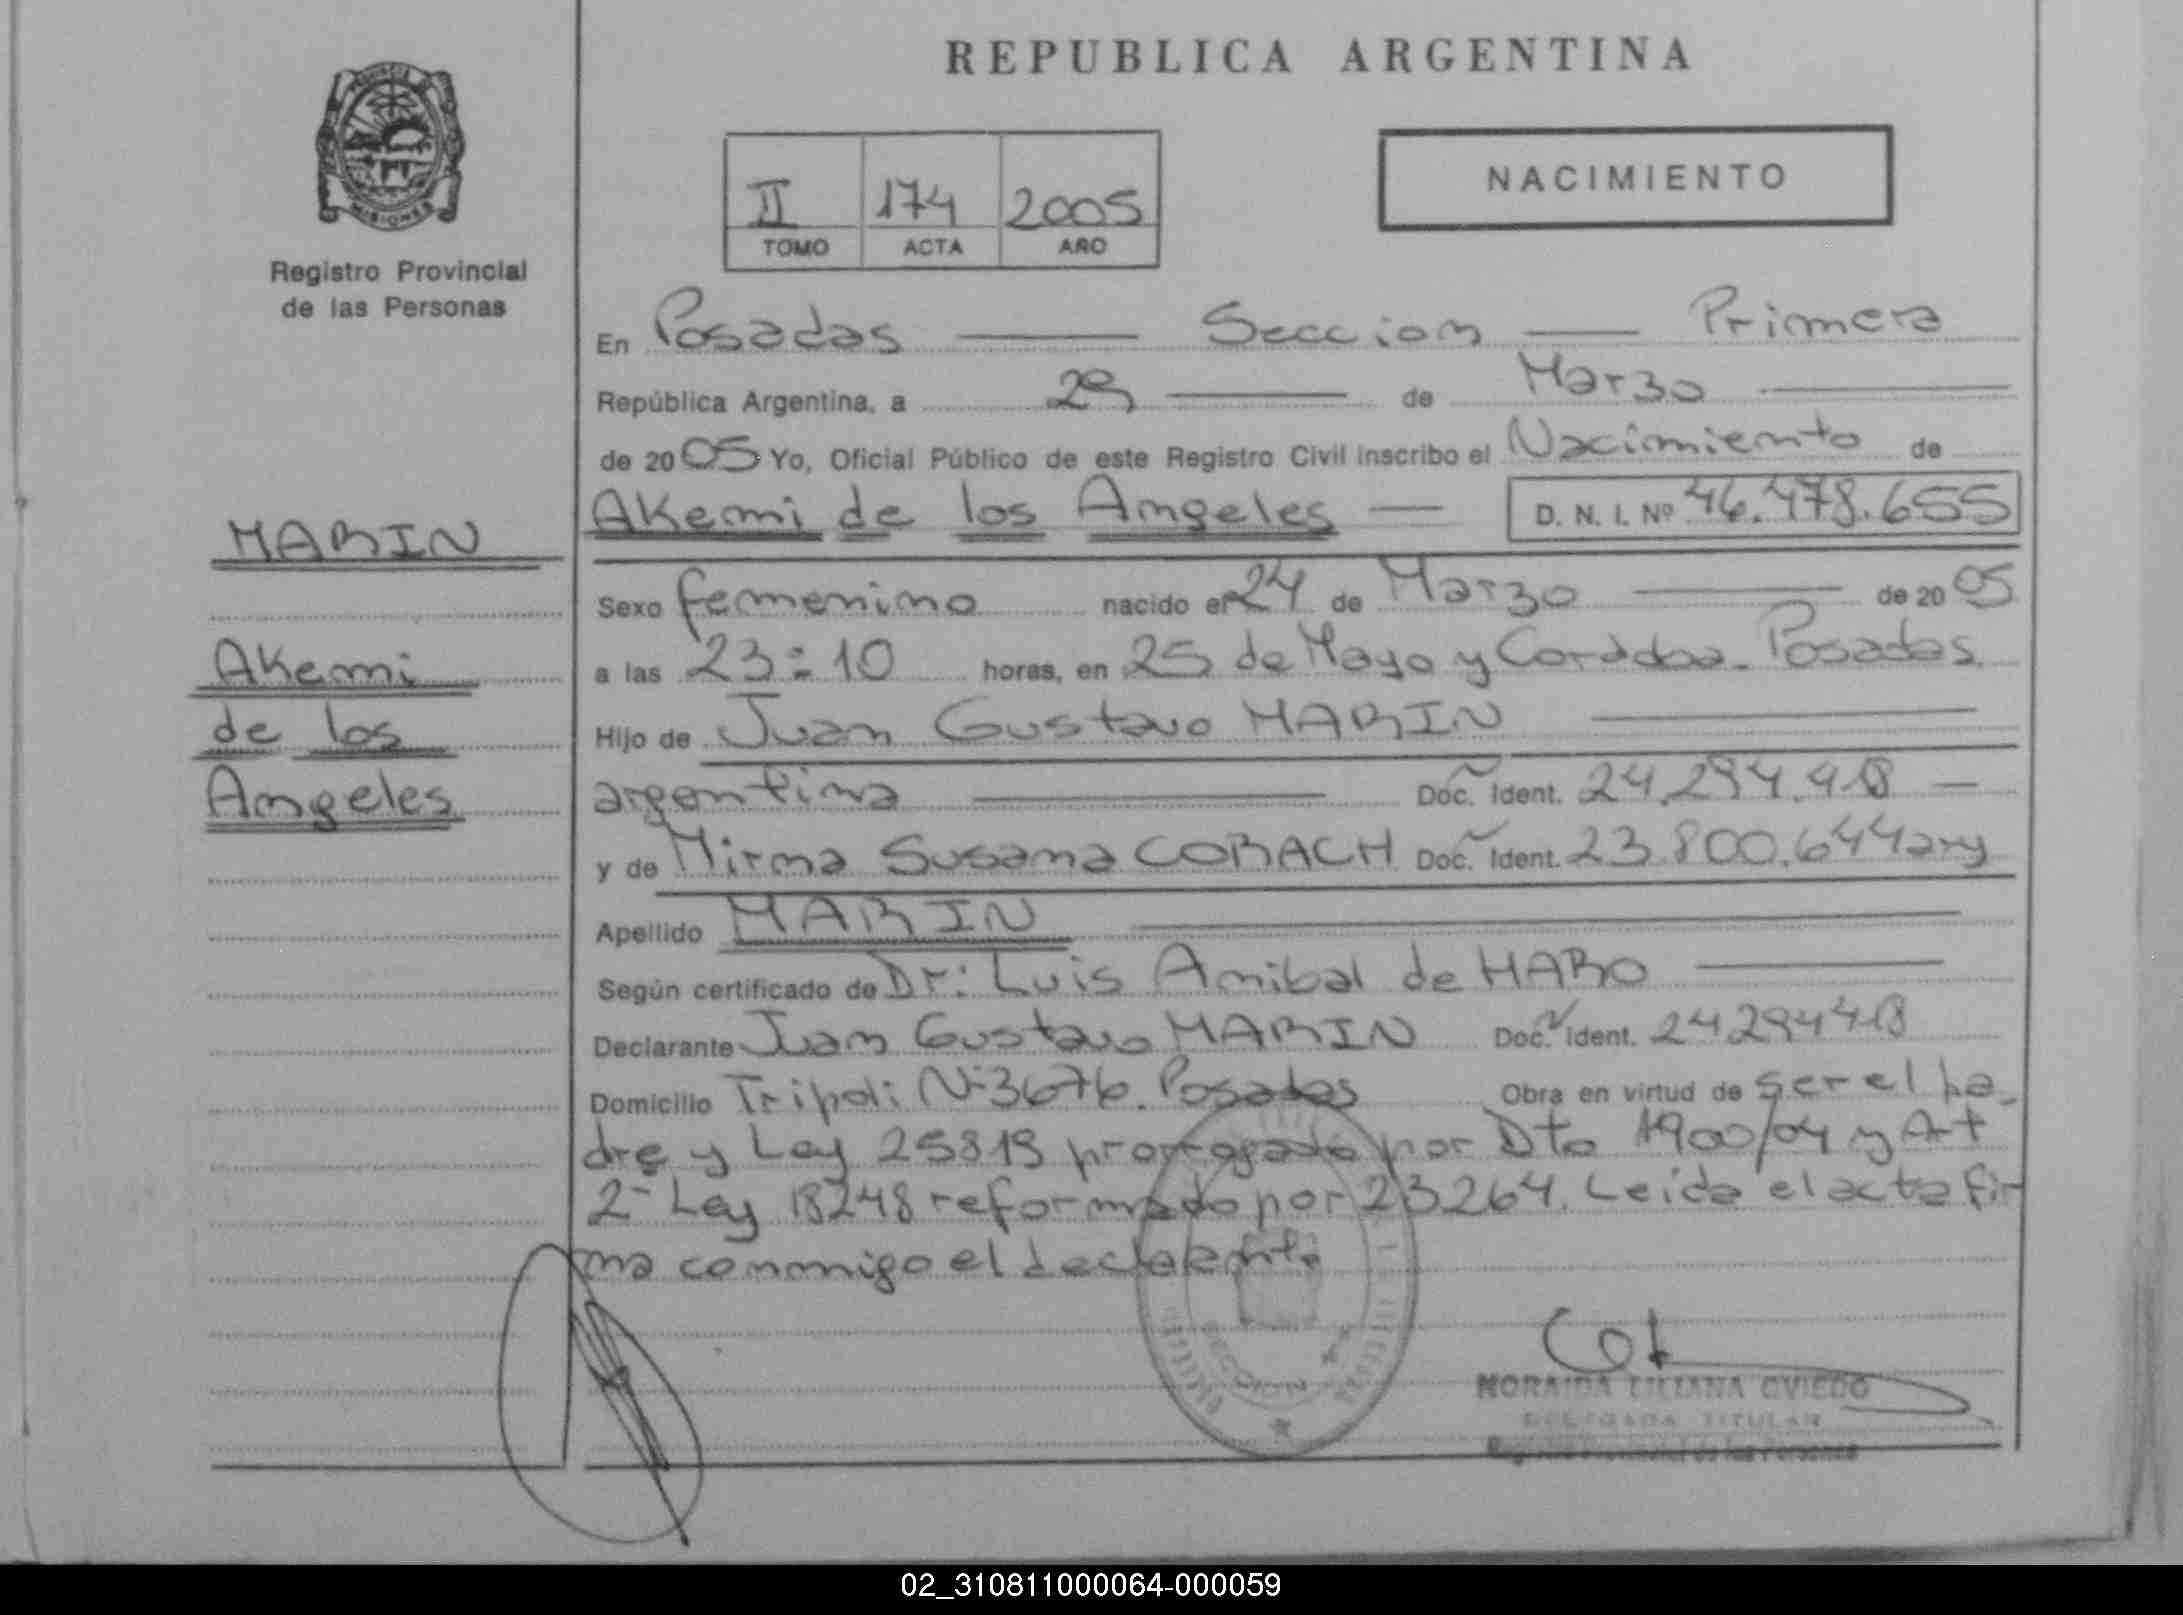 REPUBLICA ARGENTINA
MISIONES
Registro Provincial
de las Personas
II 174 2005
TOMO ACTA AÑO
NACIMIENTO
En Posadas Seccion Primera
República Argentina, a 29 de Marzo
de 2005 Yo, Oficial Público de este Registro Civil inscribo el Nacimiento de
Akemi de los Angeles D. N. I. Nº 46.478.655
MARIN
Akemi
de los
Angeles
Sexo femenino nacido el 24 de Marzo de 2005
a las 23:10 horas, en 25 de Mayo y Cordoba. Posadas
Hijo de Juan Gustavo MARIN
argentina Doc. Ident. 24.294.418
y de Mirna Susana CORACH Doc. Ident. 23.800.644 arg
Apellido MARIN
Según certificado de Dr: Luis Anibal de HARO
Declarante Juan Gustavo MARIN Doc. Ident.
Domicilio Tripoli Nº 3676. Posadas Obra en virtud de ser el pa-
dre y Ley 25819 prorrogado por Dto 1900/04 y Art
2º Ley 18248 reformado por 23264. Leida el acta fir
ma conmigo el declarante
SECCION
MORAIDA LILIANA OVIEDO
DELEGADA TITULAR
Registro Provincial de las Personas
02_310811000064-000059